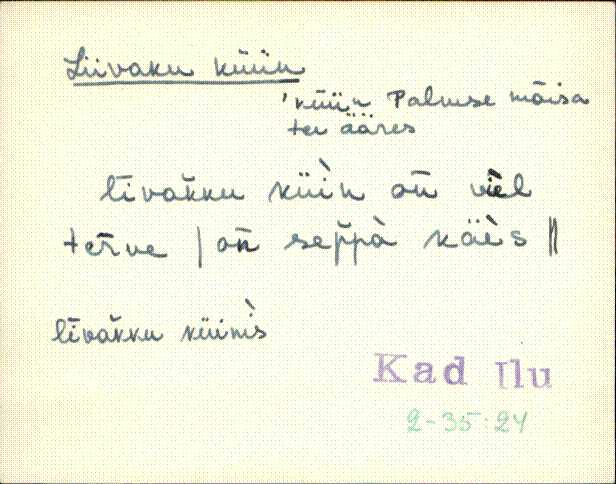 Liivaku küün
'küün Palmse mõisa
tee ääres
līvak̆ku küì̀n on̄ vièl
ter̄ve | on̄ sep̆pà käès ||
līvak̆ku küinìs
Kad Ilu
2-35:24